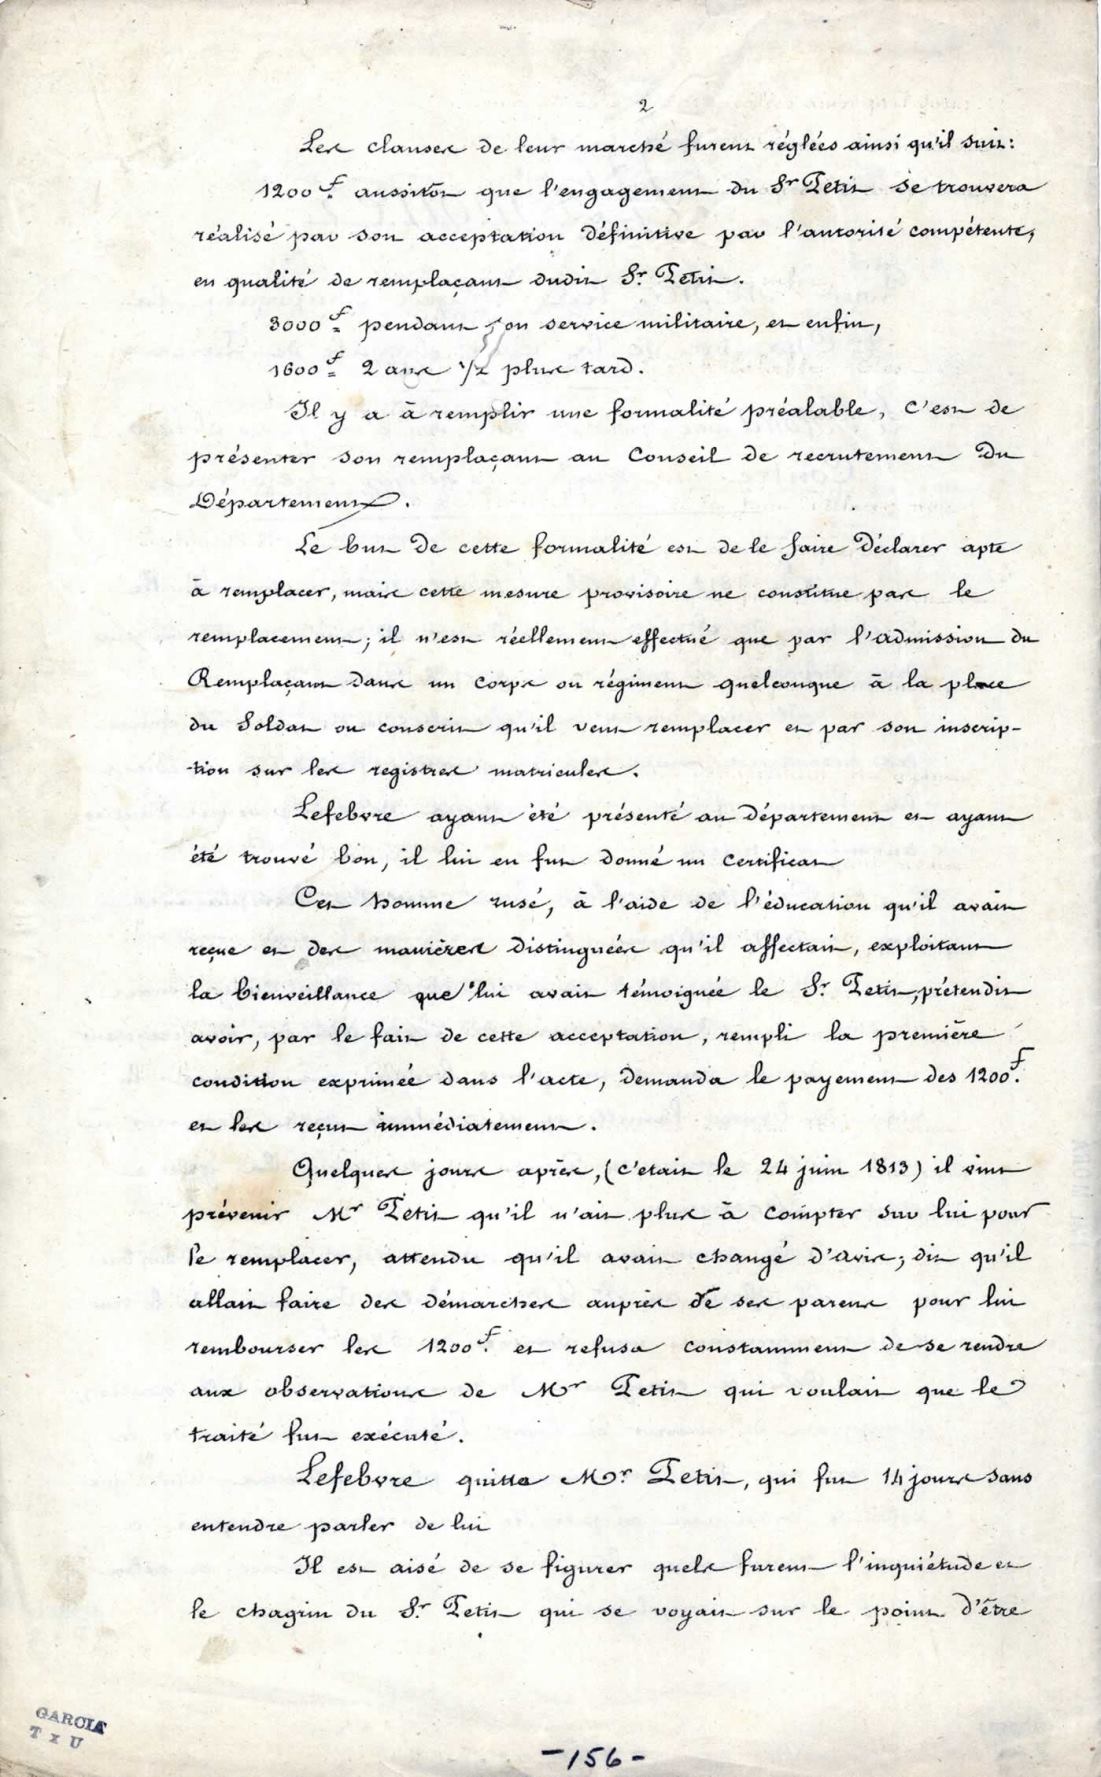 2
Les clauses de leur marché furent réglées ainsi qu'il suit:
1200f. aussitôt que l'engagement du Sr. Petit se trouvera
réalisé par son acceptation définitive par l'autorité compétente,
en qualité de remplaçant dudit Sr. Petit.
3000f. pendant son service militaire, et enfin,
1600f. 2 ans 1/2 plus tard.
Il y a à remplir une formalité préalable, c'est de
présenter son remplaçant au Conseil de recrutement du
Département.
Le but de cette formalité est de le faire déclarer apte
à remplacer, mais cette mesure provisoire ne constitue pas le
remplacement; il n'est réellement effectué que par l'admission du
Remplaçant dans un corps ou régiment quelconque à la place
du Soldat ou conscrit qu'il veut remplacer et par son inscrip-
tion sur les registres matricules.
Lefebvre ayant été présenté au département et ayant
été trouvé bon, il lui en fut donné un certificat
Cet homme rusé, à l'aide de l'éducation qu'il avait
reçue et des manières distinguées qu'il affectait, exploitant
la bienveillance que lui avait témoignée le Sr. Petit, prétendit
avoir, par le fait de cette acceptation, rempli la première
condition exprimée dans l'acte, demanda le payement des 1200f.
et les reçut immédiatement.
Quelques jours après, (c'était le 24 juin 1813) il vint
prévenir Mr Petit qu'il n'ait plus à compter sur lui pour
le remplacer, attendu qu'il avait changé d'avis; dit qu'il
allait faire des démarches auprès de ses parents pour lui
rembourser les 1200f. et refusa constamment de se rendre
aux observations de Mr Petit qui voulait que le
traité fut exécuté.
Lefebvre quitta Mr. Petit, qui fut 14 jours sans
entendre parler de lui
Il est aisé de se figurer quels furent l'inquiétude et
le chagrin du Sr. Petit qui se voyait sur le point d'être
GARCIA
T x U
-156-